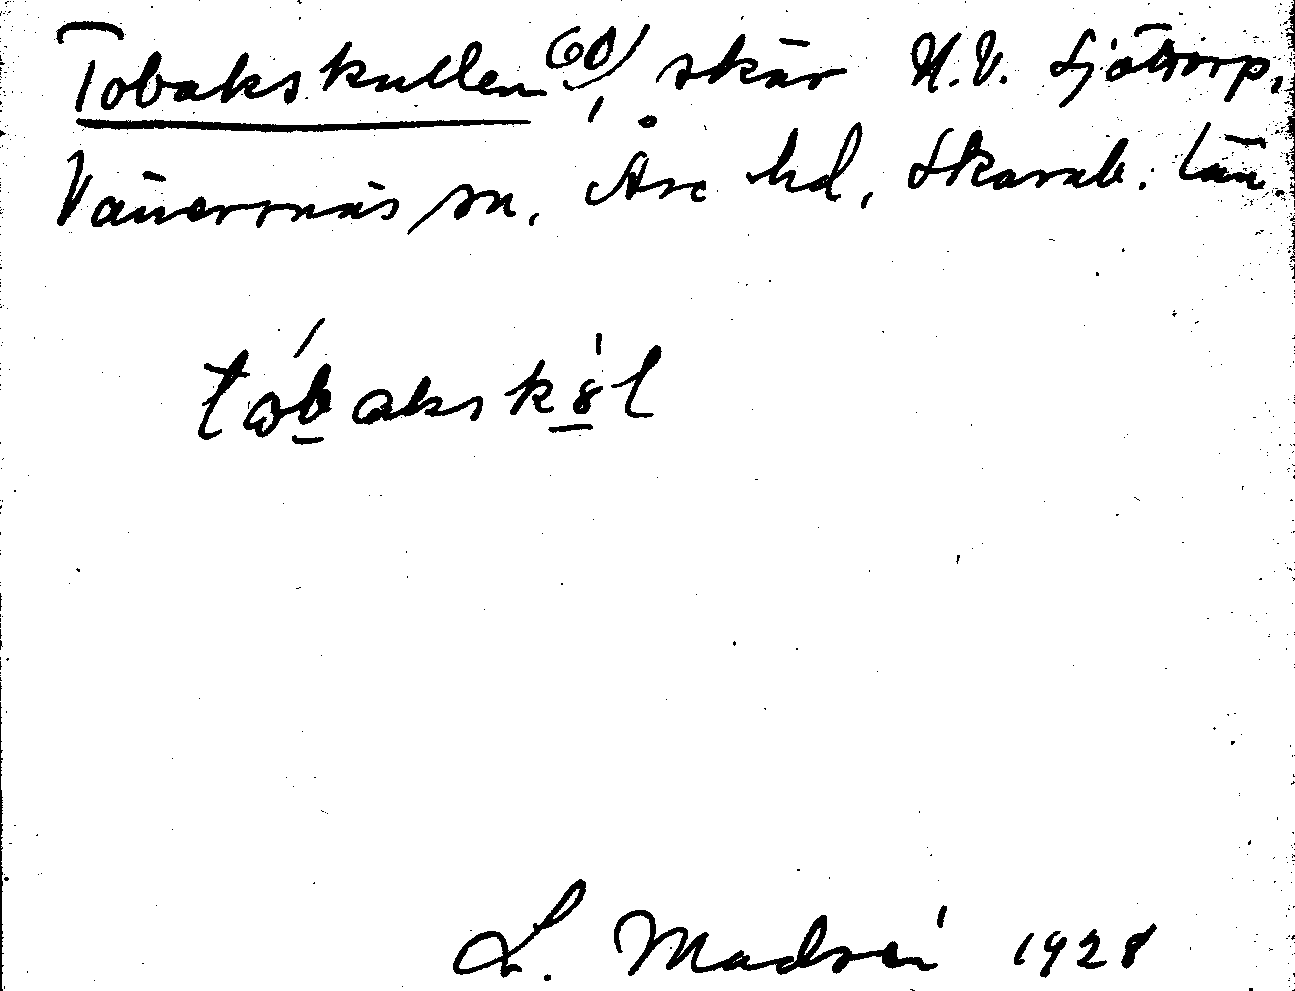 Tobakskullen 60), skär N.V. Sjöttorp,
Vänersnäs sn, Åse hd, Skarab. län.
tobakskɵl
L. Madsén 1928